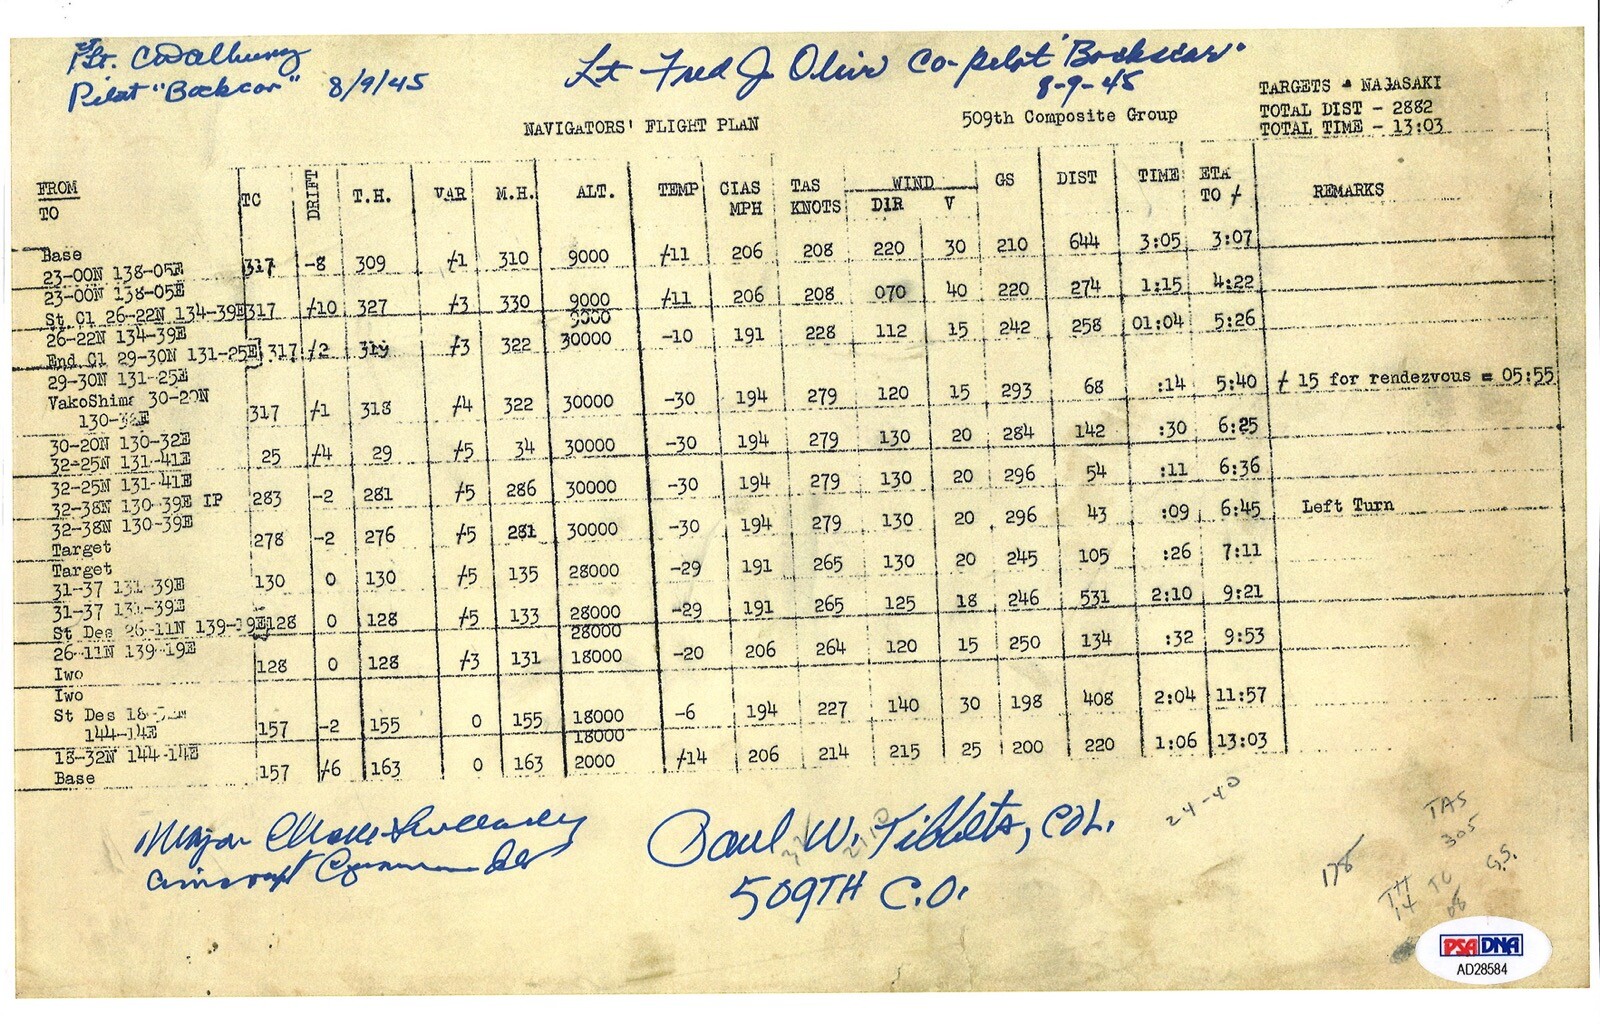 1st Lt. CDAlbury
Pilot "Bockscar" 8/9/45
Lt Fred J Olivi Co-Pilot "Bockscar"
8-9-45
TARGETS - NAGASAKI
TOTAL DIST - 2882
TOTAL TIME - 13:03
NAVIGATORS' FLIGHT PLAN
509th Composite Group
FROM
TO
TC DRIFT T.H. VAR M.H. ALT. TEMP CIAS MPH TAS KNOTS WIND DIR V GS DIST TIME ETA TO + REMARKS
Base
23-00N 138-05E 317 -8 309 +1 310 9000 +11 206 208 220 30 210 644 3:05 3:07
23-00N 138-05E
St Cl 26-22N 134-39E 317 +10 327 +3 330 9000 +11 206 208 070 40 220 274 1:15 4:22
26-22N 134-39E 9000
End Cl 29-30N 131-25E 317 +2 319 +3 322 30000 -10 191 228 112 15 242 258 01:04 5:26
29-30N 131-25E
VakoShima 30-20N
130-32E 317 +1 318 +4 322 30000 -30 194 279 120 15 293 68 :14 5:40 + 15 for rendezvous = 05:55
30-20N 130-32E
32-25N 131-41E 25 +4 29 +5 34 30000 -30 194 279 130 20 284 142 :30 6:25
32-25N 131-41E
32-38N 130-39E IP 283 -2 281 +5 286 30000 -30 194 279 130 20 296 54 :11 6:36
32-38N 130-39E
Target 278 -2 276 +5 281 30000 -30 194 279 130 20 296 43 :09 6:45 Left Turn
Target
31-37 131-39E 130 0 130 +5 135 28000 -29 191 265 130 20 245 105 :26 7:11
31-37 131-39E
St Des 26-11N 139-19E 128 0 128 +5 133 28000 -29 191 265 125 18 246 531 2:10 9:21
26-11N 139-19E 28000
Iwo 128 0 128 +3 131 18000 -20 206 264 120 15 250 134 :32 9:53
Iwo
St Des 18-
144-14E 157 -2 155 0 155 18000 -6 194 227 140 30 198 408 2:04 11:57
18-32N 144-14E 18000
Base 157 +6 163 0 163 2000 +14 206 214 215 25 200 220 1:06 13:03
Major
Aircraft Commander
Paul W. Tibbets, COL.
509TH C.O.
24-40
178
TAS
305
G.S.
TH TC
14 08
PSA DNA
AD28584